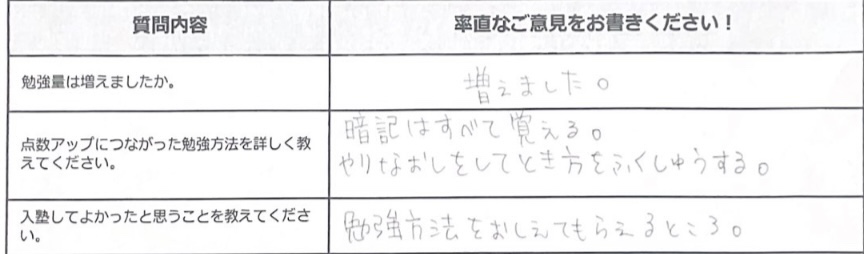 質問内容
率直なご意見をお書きください！
勉強量は増えましたか。
増えました。
点数アップにつながった勉強方法を詳しく教
えてください。
暗記はすべて覚える。
やりなおしをしてとき方をふくしゅうする。
入塾してよかったと思うことを教えてくださ
い。
勉強方法をおしえてもらえるところ。